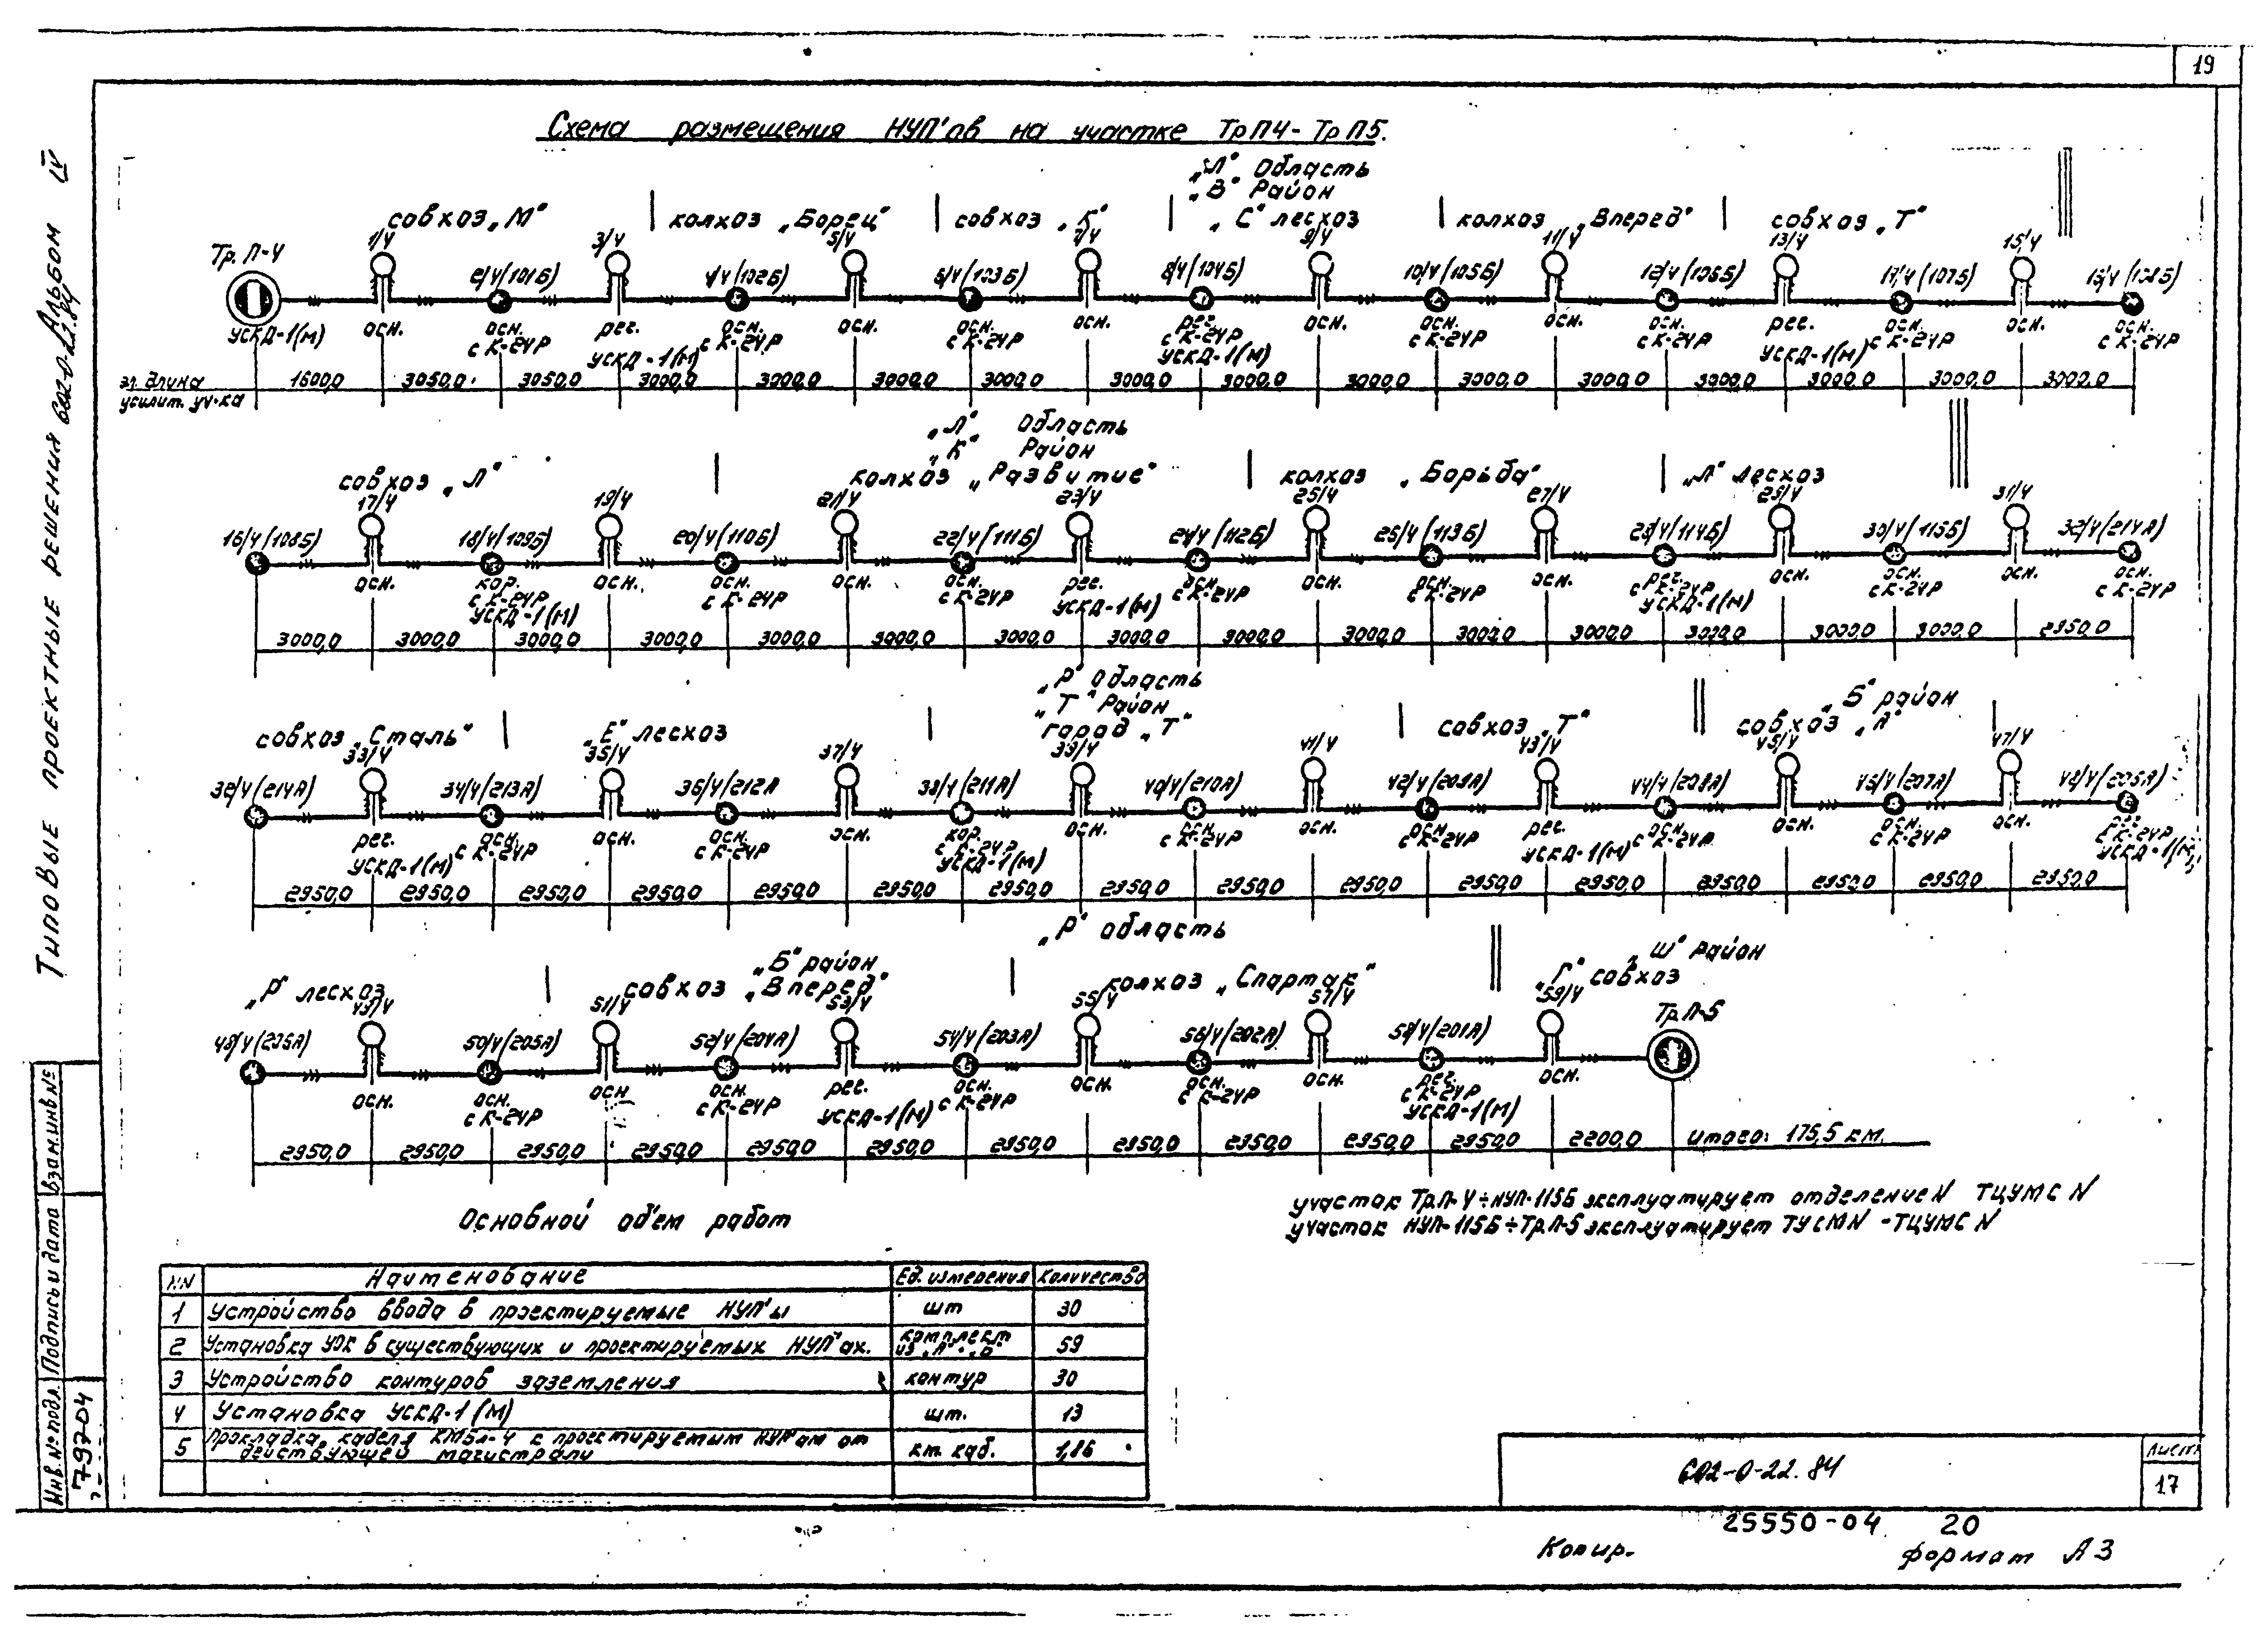 19
Схема размещения НУП'ов на участке ТрП4-ТрП5.
„Л" Область
„В" Район
совхоз „М" колхоз „Борец" совхоз „К" „С" лесхоз колхоз „Вперед" совхоз „Т"
Тр.П-4 1/4 3/4 5/4 7/4 9/4 11/4 13/4 15/4
2/4(101Б) 4/4(102Б) 6/4(103Б) 8/4(104Б) 10/4(105Б) 12/4(106Б) 14/4(107Б) 16/4(108Б)
УСКД-1(М) осн. осн. рег. осн. осн. осн. осн. рег. осн. осн. осн. осн. рег. осн. осн. осн.
с К-24Р с К-24Р с К-24Р с К-24Р с К-24Р с К-24Р с К-24Р с К-24Р
УСКД-1(М) УСКД-1(М) УСКД-1(М)
эл. длина 1600,0 3050,0 3050,0 3000,0 3000,0 3000,0 3000,0 3000,0 3000,0 3000,0 3000,0 3000,0 3000,0 3000,0 3000,0 3000,0
усилит. уч-ка
„Л" область
„К" Район
совхоз „Л" колхоз „Развитие" колхоз „Борьба" „Л" лесхоз
17/4 19/4 21/4 23/4 25/4 27/4 29/4 31/4
16/4(108Б) 18/4(109Б) 20/4(110Б) 22/4(111Б) 24/4(112Б) 26/4(113Б) 28/4(114Б) 30/4(115Б) 32/4(214А)
осн. кор. осн. осн. осн. осн. рег. осн. осн. осн. осн. рег. осн. осн. осн. осн.
с К-24Р с К-24Р с К-24Р с К-24Р с К-24Р с К-24Р с К-24Р с К-24Р
УСКД-1(М) УСКД-1(М) УСКД-1(М)
3000,0 3000,0 3000,0 3000,0 3000,0 3000,0 3000,0 3000,0 3000,0 3000,0 3000,0 3000,0 3000,0 3000,0 3000,0 2950,0
„Р" область
„Т" Район „Б" район
совхоз „Сталь" „Е" лесхоз город „Т" совхоз „Т" совхоз „А"
33/4 35/4 37/4 39/4 41/4 43/4 45/4 47/4
32/4(214А) 34/4(213А) 36/4(212А 38/4(211А) 40/4(210А) 42/4(209А) 44/4(208А) 46/4(207А) 48/4(206А)
рег. осн. осн. осн. осн. кор. осн. осн. осн. осн. рег. осн. осн. осн. осн.
УСКД-1(М) с К-24Р с К-24Р с К-24Р с К-24Р с К-24Р УСКД-1(М) с К-24Р с К-24Р с К-24Р
УСКД-1(М) УСКД-1(М)
2950,0 2950,0 2950,0 2950,0 2950,0 2950,0 2950,0 2950,0 2950,0 2950,0 2950,0 2950,0 2950,0 2950,0 2950,0 2950,0
„Р" область
„Б" район „Ш" район
„Р" лесхоз совхоз „Вперед" колхоз „Спартак" „Г" совхоз
49/4 51/4 53/4 55/4 57/4 59/4 Тр.П-5
48/4(206А) 50/4(205А) 52/4(204А) 54/4(203А) 56/4(202А) 58/4(201А)
осн. осн. осн осн. рег. осн. осн. осн. осн. рег. осн.
с К-24Р с К-24Р УСКД-1(М) с К-24Р с К-24Р с К-24Р
УСКД-1(М)
2950,0 2950,0 2950,0 2950,0 2950,0 2950,0 2950,0 2950,0 2950,0 2950,0 2950,0 2200,0 итого: 175,5 км.
участок Тр.П-4÷НУП-115Б эксплуатирует отделение N ТЦУМС N
участок НУП-115Б÷Тр.П-5 эксплуатирует ТУСМN -ТЦУМС N
Основной об'ем работ
NN Наименование Ед. измерения Количество
1 Устройство ввода в проектируемые НУП'ы шт 30
2 Установка УОК в существующих и проектируемых НУП'ах. комплект из „А" и „Б" 59
3 Устройство контуров заземления контур 30
4 Установка УСКД-1(М) шт. 13
5 Прокладка кабеля КМБл-4 к проектируемым НУП'ам от действующей магистрали км. каб. 1,86
602-0-22.84
Лист
17
25550-04 20
Копир. формат А3
Типовые проектные решения 602-0-22.84 Альбом IV
Взам.инв№
Подпись и дата
Инв.№подл.
79704